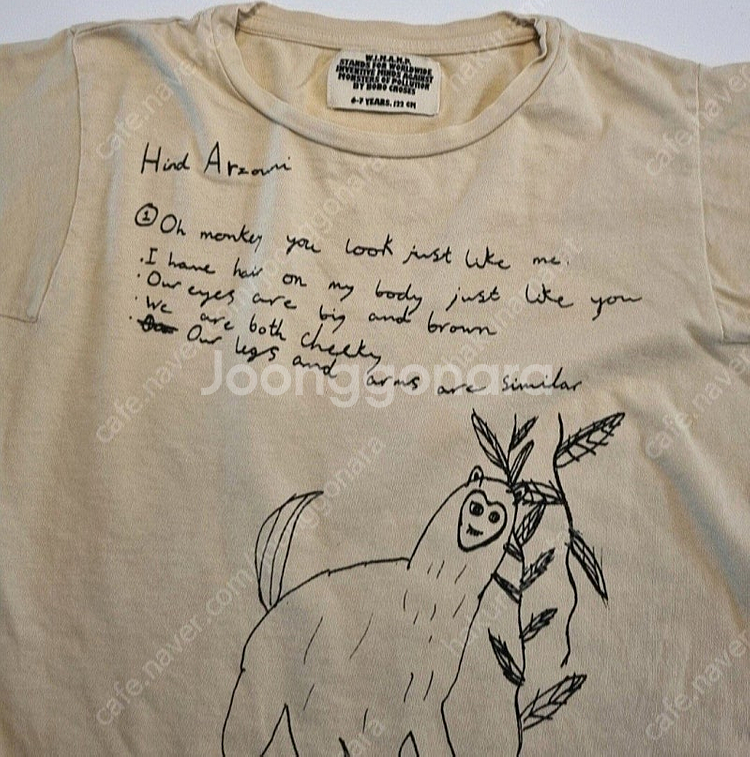 W.I.M.A.M.P.
STANDS FOR WORLDWIDE
INVENTIVE MINDS AGAINST
MONSTERS OF POLLUTION
BY BOBO CHOSES
6-7 YEARS. 122 CM
Hind Arzowi
① Oh monkey you look just like me.
· I have hair on my body just like you
· Our eyes are big and brown
· We are both cheeky
· Our legs and arms are similar
Joonggonara
cafe.naver.com/joonggonara